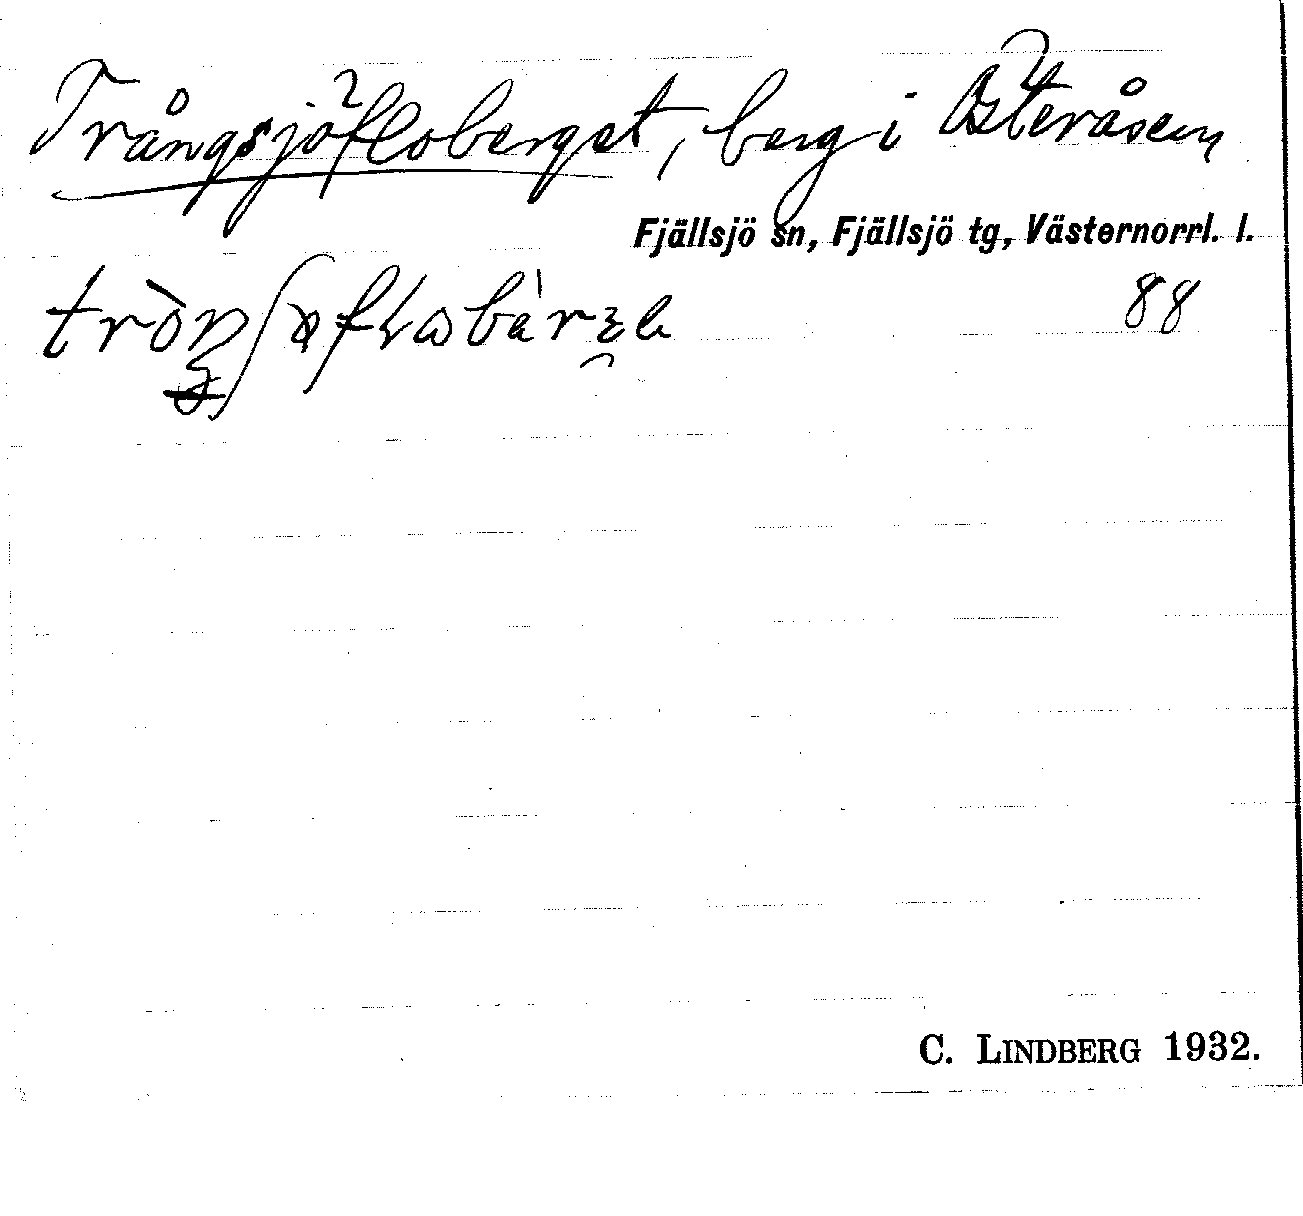 Trångsjöfloberget, berg i Österåsen
Fjällsjö sn, Fjällsjö tg, Västernorrl. l.
88
C. LINDBERG 1932.